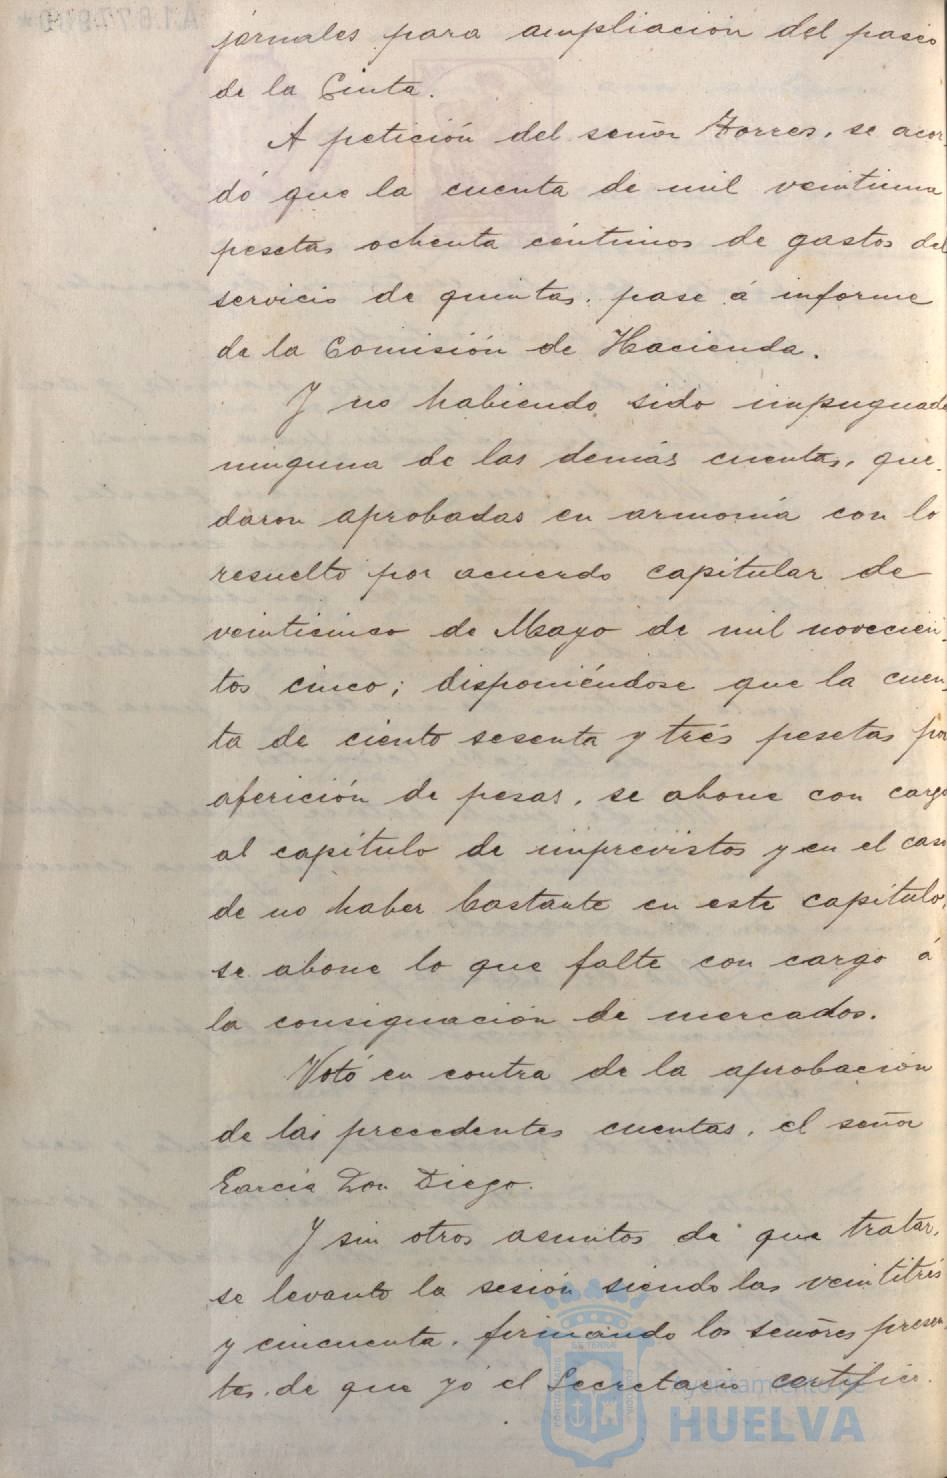 jornales para ampliación del paseo
de la Cinta.
A petición del señor Torres, se acor-
dó que la cuenta de mil veintiuna
pesetas ochenta céntimos de gastos del
servicio de quintas, pase á informe
de la Comisión de Hacienda.
Y no habiendo sido impugnada
ninguna de las demás cuentas, que-
daron aprobadas en armonía con lo
resuelto por acuerdo capitular de
veinticinco de Mayo de mil novecien-
tos cinco; disponiéndose que la cuen-
ta de ciento sesenta y trés pesetas por
aferición de pesas, se abone con cargo
al capítulo de imprevistos y en el caso
de no haber bastante en este capítulo,
se abone lo que falte con cargo á
la consignación de mercados.
Votó en contra de la aprobación
de las precedentes cuentas, el señor
García Don Diego.
Y sin otros asuntos de que tratar,
se levantó la sesión siendo las veintitrés
y cincuenta, firmando los señores presen-
tes, de que yó el Secretario certifico.
Ayuntamiento de
HUELVA